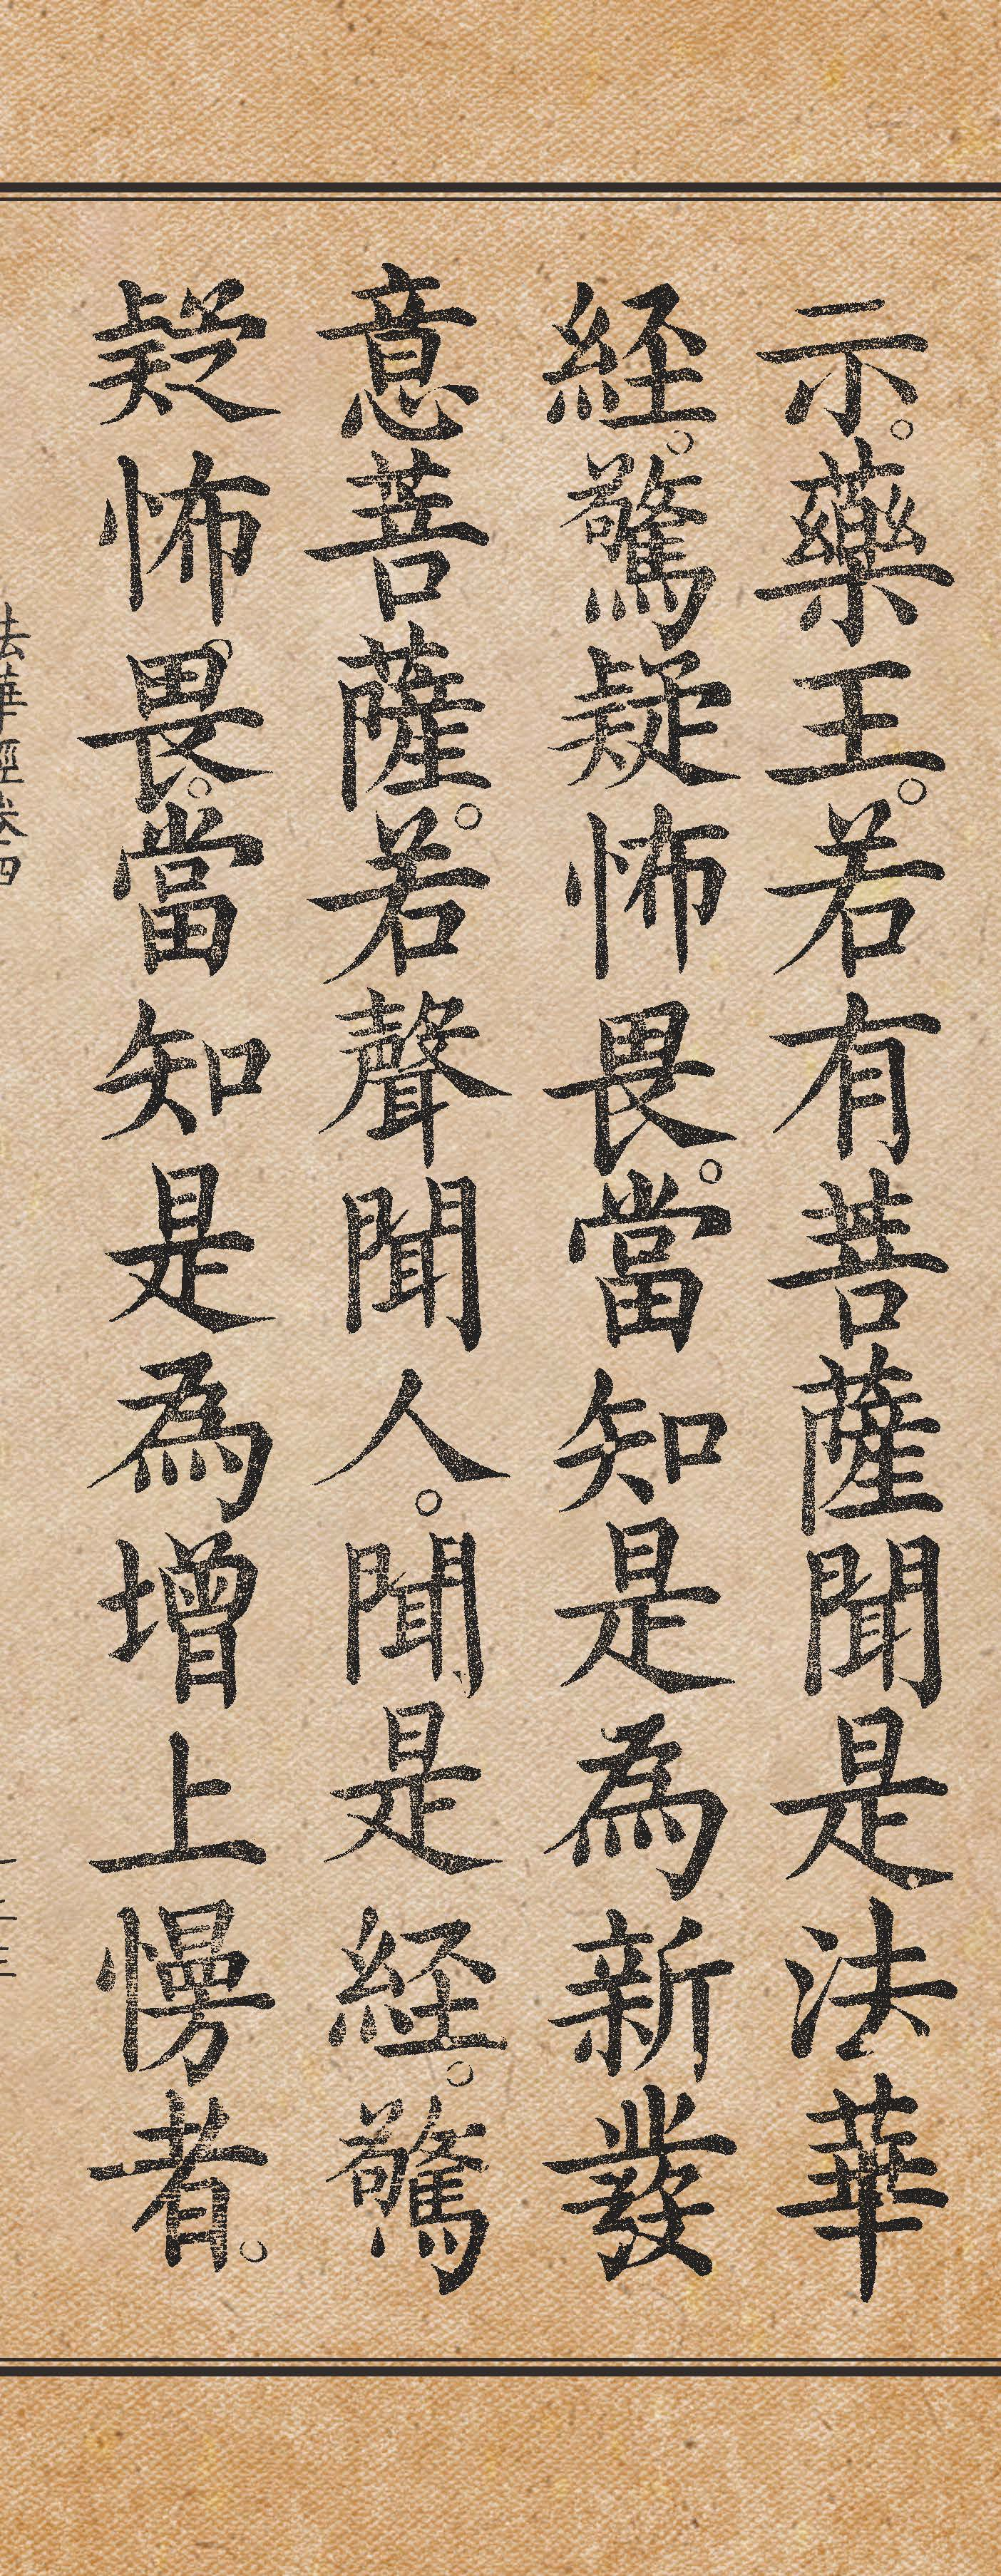 示。藥王。若有菩薩聞是法華
経。驚疑怖畏。當知是為新發
意菩薩。若聲聞人。聞是経。驚
疑怖畏。當知是為增上慢者。
法華經卷四